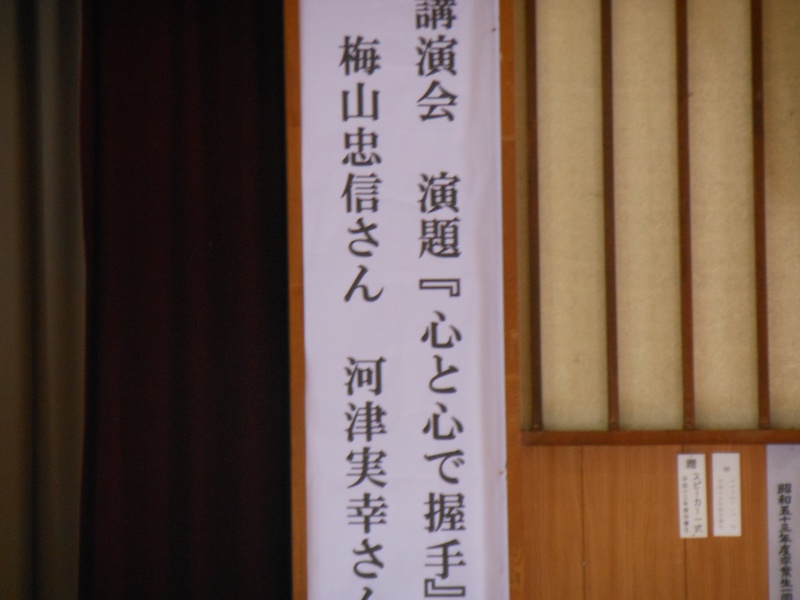 講演会　演題『心と心で握手』
梅山忠信さん　河津実幸さん
贈 スピーカー一式
昭和五十三年度卒業生一同